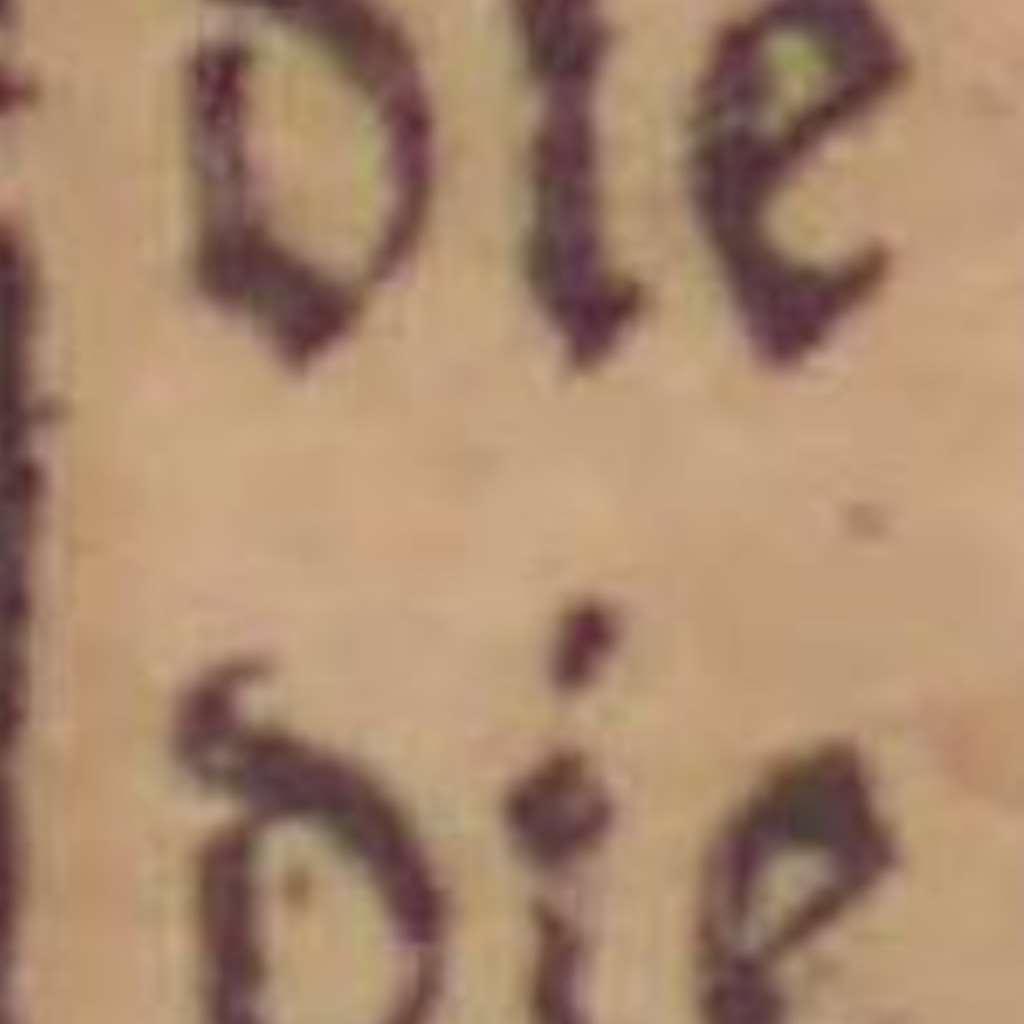 die
die